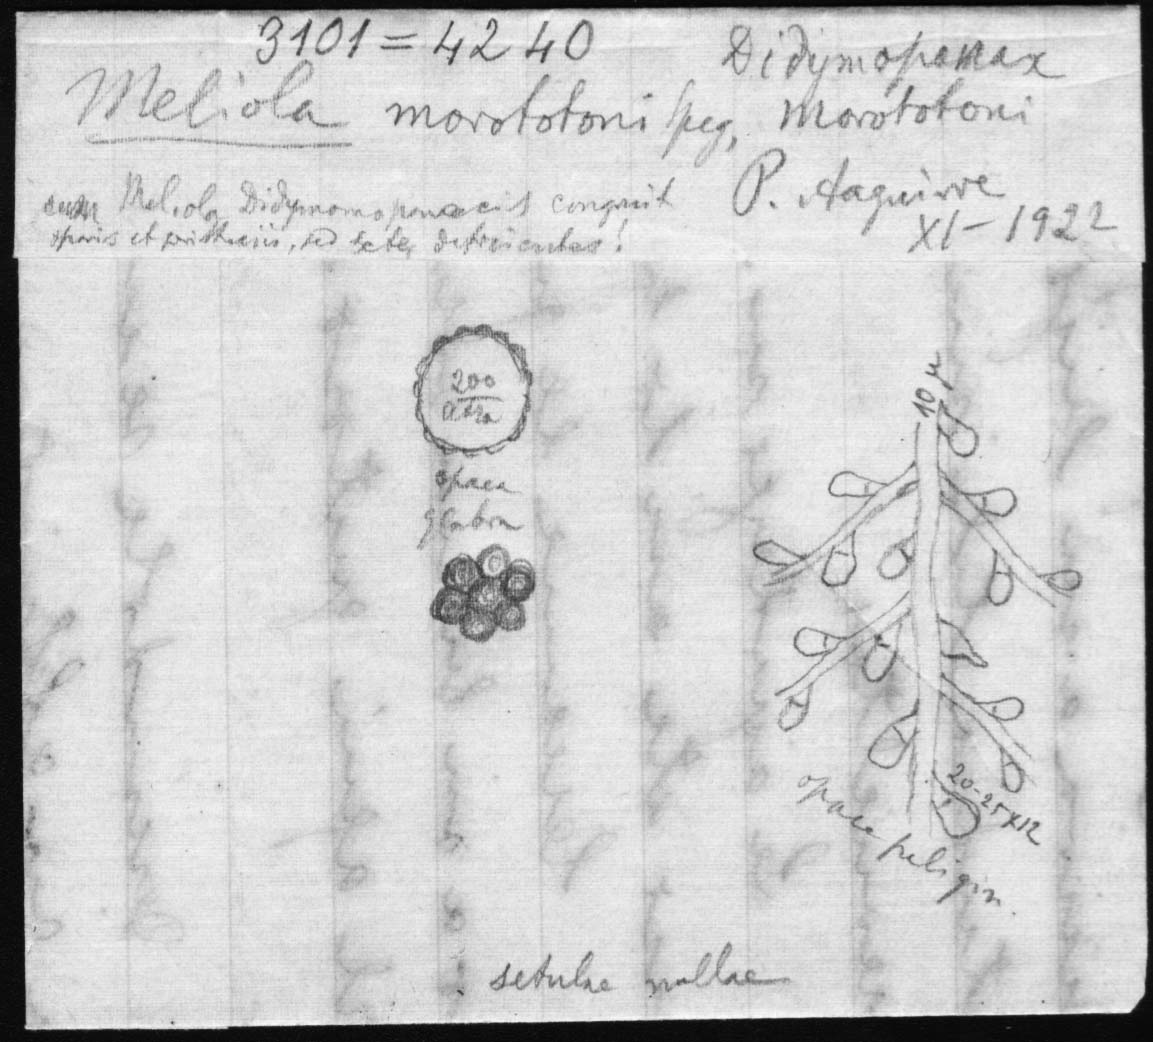 3101 = 4240
Didymopanax
Meliola morototoni Speg, morototoni
P. Aaguirre
XI-1922
cum Meliola Didymomopanacis congruit
sporis et peritheciis, sed setis deficientes!
200
atra
opaca
glabra
10 µ
20-25x12
opaca fuligin.
setulae nullae